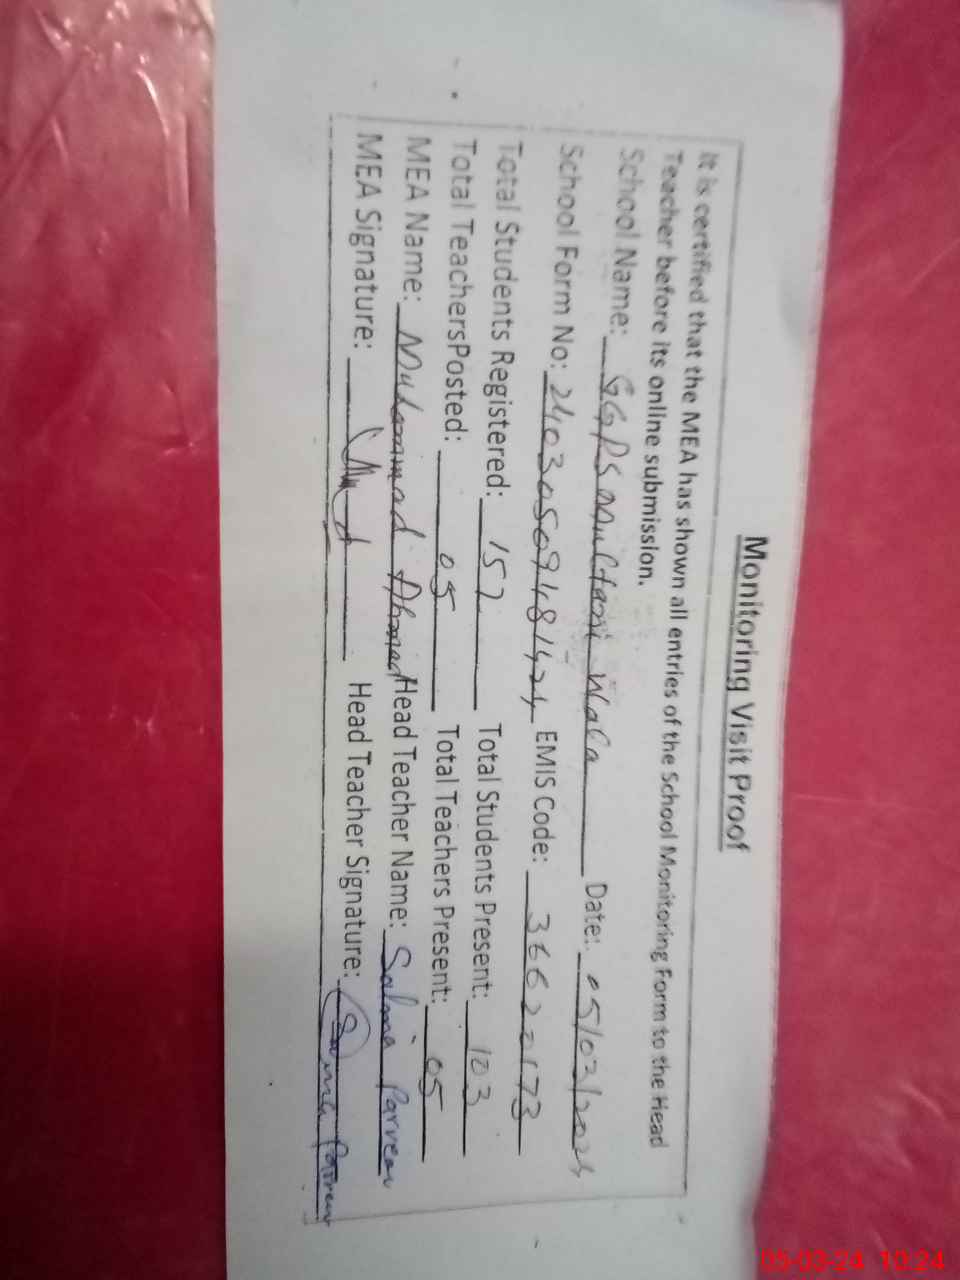 Monitoring Visit Proof
It is certified that the MEA has shown all entries of the School Monitoring Form to the Head
Teacher before its online submission.
School Name: GGPS Multani Wala Date: 05/03/2024
School Form No: 24030509481424 EMIS Code: 36620173
Total Students Registered: 157 Total Students Present: 103
Total TeachersPosted: 05 Total Teachers Present: 05
MEA Name: Muhammad Ahmad Head Teacher Name: Salma Parveen
MEA Signature: Head Teacher Signature: Salma Parveen
05-03-24 10:24